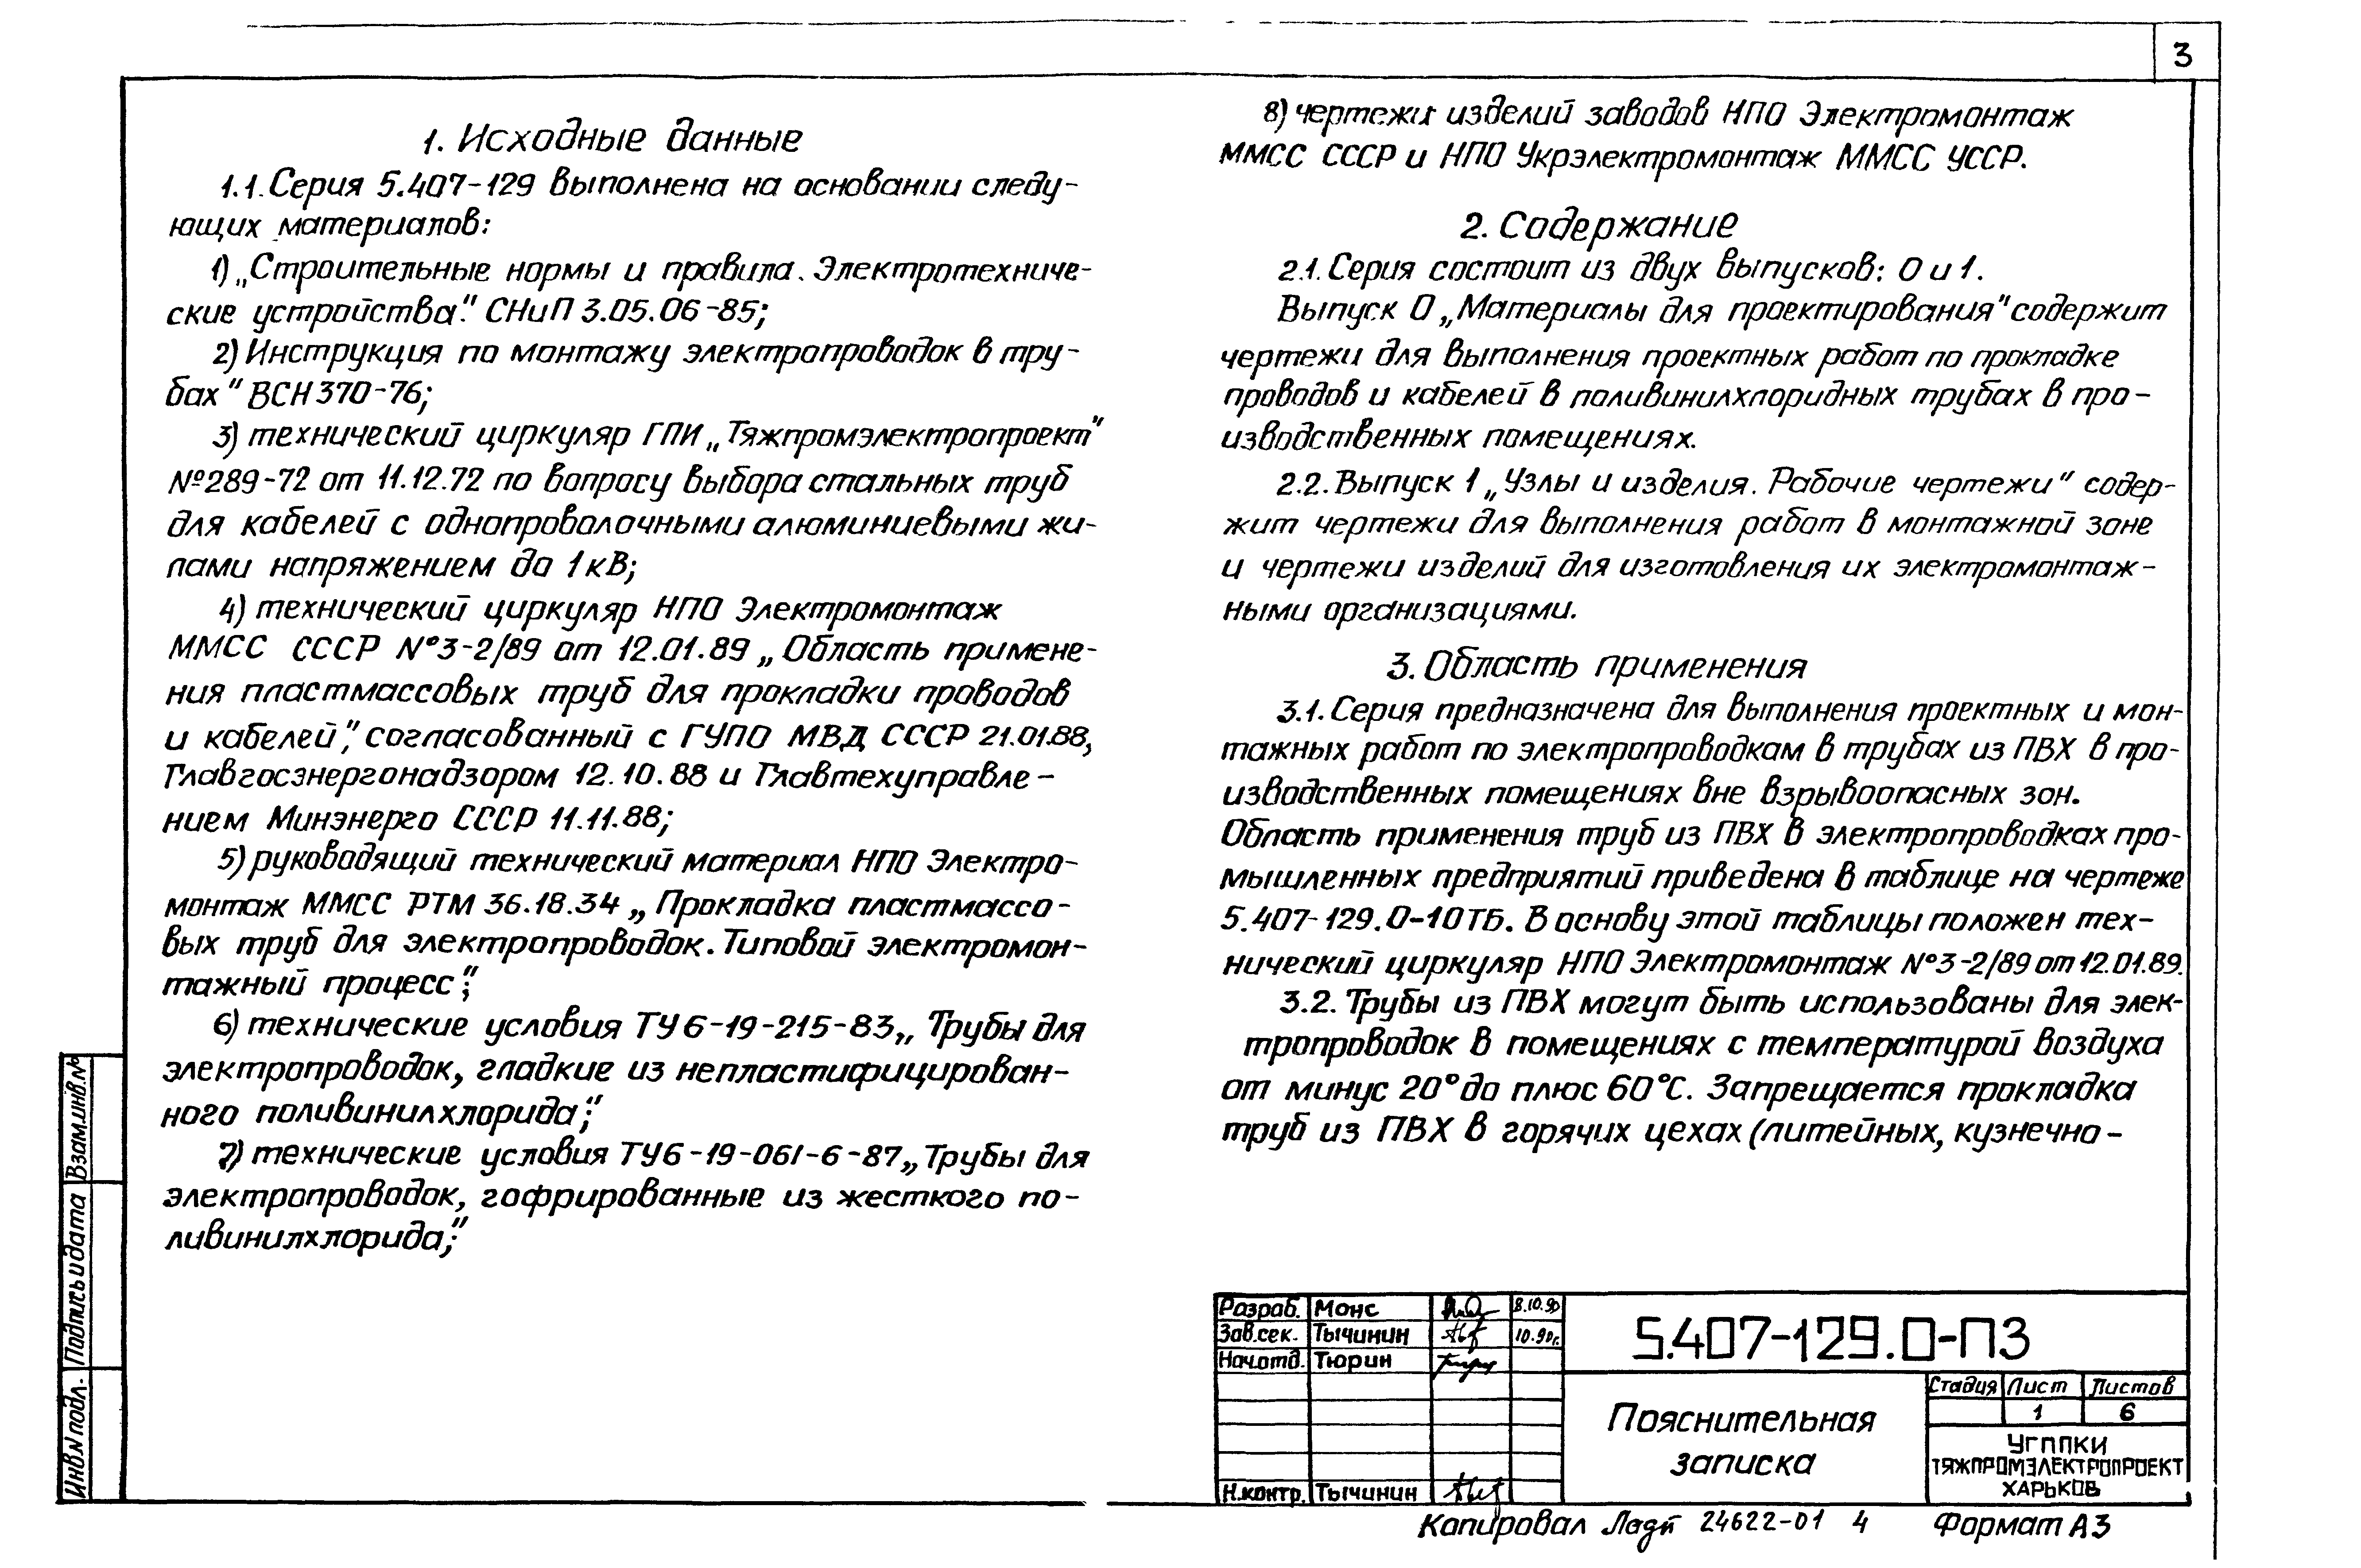 3
1. Исходные данные
1.1. Серия 5.407-129 выполнена на основании следу-
ющих материалов:
1) „Строительные нормы и правила. Электротехниче-
ские устройства". СНиП 3.05.06-85;
2) Инструкция по монтажу электропроводок в тру-
бах" ВСН 370-76;
3) технический циркуляр ГПИ „Тяжпромэлектропроект"
№289-72 от 11.12.72 по вопросу выбора стальных труб
для кабелей с однопроволочными алюминиевыми жи-
лами напряжением до 1кВ;
4) технический циркуляр НПО Электромонтаж
ММСС СССР №3-2/89 от 12.01.89 „Область примене-
ния пластмассовых труб для прокладки проводов
и кабелей", согласованный с ГУПО МВД СССР 21.01.88,
Главгосэнергонадзором 12.10.88 и Главтехуправле-
нием Минэнерго СССР 11.11.88;
5) руководящий технический материал НПО Электро-
монтаж ММСС РТМ 36.18.34 „Прокладка пластмассо-
вых труб для электропроводок. Типовой электромон-
тажный процесс";
6) технические условия ТУ6-19-215-83 „Трубы для
электропроводок, гладкие из непластифицирован-
ного поливинилхлорида";
7) технические условия ТУ6-19-061-6-87 „Трубы для
электропроводок, гофрированные из жесткого по-
ливинилхлорида";
8) чертежи изделий заводов НПО Электромонтаж
ММСС СССР и НПО Укрэлектромонтаж ММСС УССР.
2. Содержание
2.1. Серия состоит из двух выпусков: 0 и 1.
Выпуск 0 „Материалы для проектирования" содержит
чертежи для выполнения проектных работ по прокладке
проводов и кабелей в поливинилхлоридных трубах в про-
изводственных помещениях.
2.2. Выпуск 1 „Узлы и изделия. Рабочие чертежи" содер-
жит чертежи для выполнения работ в монтажной зоне
и чертежи изделий для изготовления их электромонтаж-
ными организациями.
3. Область применения
3.1. Серия предназначена для выполнения проектных и мон-
тажных работ по электропроводкам в трубах из ПВХ в про-
изводственных помещениях вне взрывоопасных зон.
Область применения труб из ПВХ в электропроводках про-
мышленных предприятий приведена в таблице на чертеже
5.407-129.0-10ТБ. В основу этой таблицы положен тех-
нический циркуляр НПО Электромонтаж №3-2/89 от 12.01.89.
3.2. Трубы из ПВХ могут быть использованы для элек-
тропроводок в помещениях с температурой воздуха
от минус 20° до плюс 60°С. Запрещается прокладка
труб из ПВХ в горячих цехах (литейных, кузнечно-
Взам.инв.№
Подпись и дата
Инв.№ подл.
Разраб. Монс 8.10.90
Зав.сек. Тычинин 10.90г.
Нач.отд. Тюрин
Н.контр. Тычинин
5.407-129.0-ПЗ
Пояснительная
записка
Стадия Лист Листов
1 6
УГППКИ
ТЯЖПРОМЭЛЕКТРОПРОЕКТ
ХАРЬКОВ
Копировал 24622-01 4 Формат А3